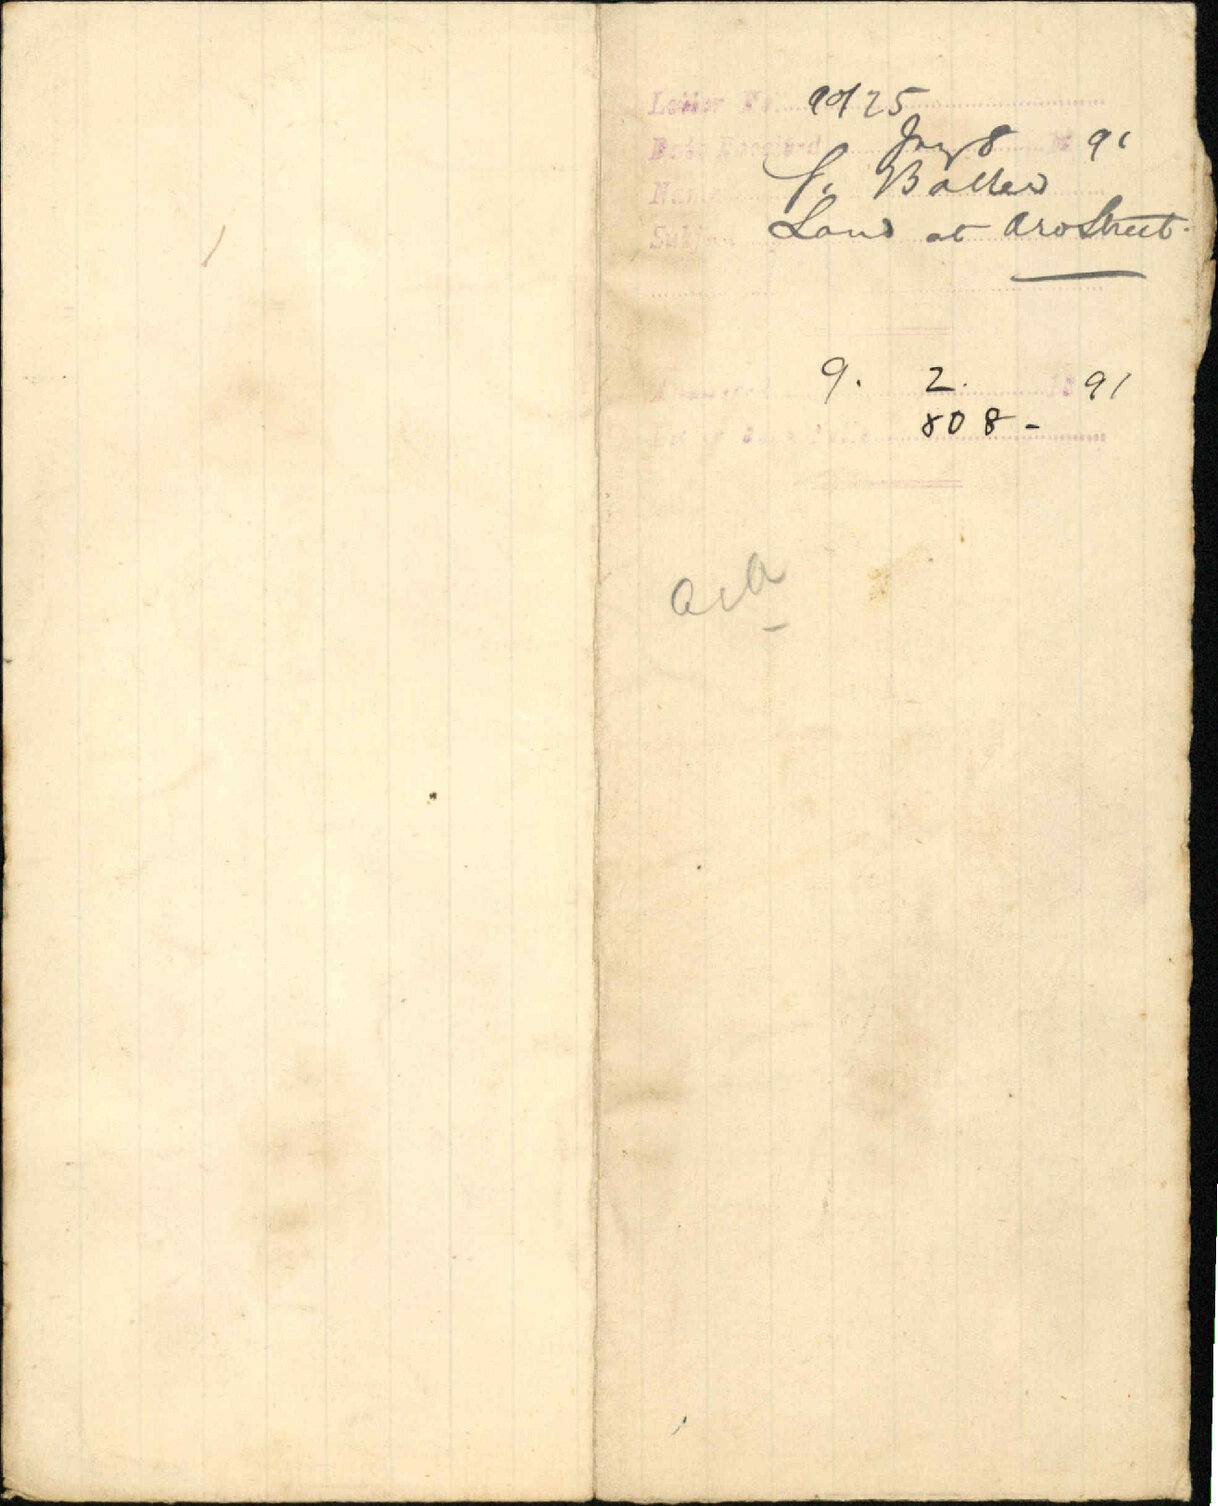 Letter No. 90/25
Date Received Jany 8 18 91
Name J. Balter
Subject Land at Aro Street.
Answered 9. 2. 18 91
808 -
Ack